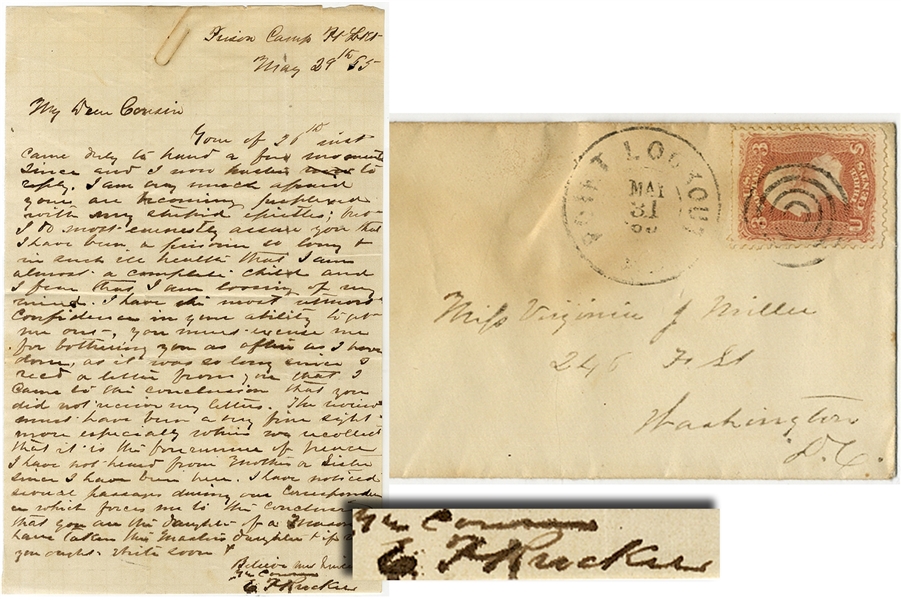 Prison Camp Pt Lkt
May 29th 65
My Dear Cousin
Your of 26th inst
came duly to hand a few moments
since and I now hasten to
reply. I am very much afraid
you are becoming perplexed
with my stupid epistles; but
I do most earnestly assure you that
I have been a prisoner so long &
in such ill health that I am
almost a complete child and
I fear that I am loosing of my
mind. I have the most utmost
confidence in your ability to get
me out, you must excuse me
for bothering you as often as I have
done, as it was so long since I
recd a letter from you that I
came to the conclusion that you
did not receive my letters. The review
must have been a very fine sight
more especially when we recollect
that it is the forerunner of peace
I have not heard from Mother or Sister
since I have been here. I have noticed
several passages during our correspondence
which forces me to the conclusion
that you are the daughter of a Mason
have taken the Masters daughter & if
you ought. Write soon &
Believe me
Your Cousin
E F Rucker
POINT LOOKOUT
MAY
31
3 CENTS
U S POSTAGE
Miss Virginia J Miller
246 F. St
Washington
D.C.
Your Cousin
E F Rucker